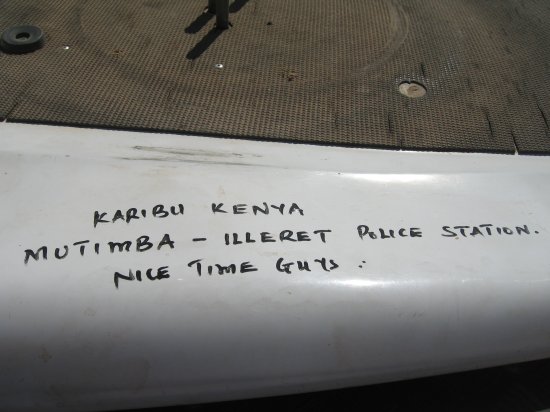 KARIBU KENYA
MUTIMBA - ILLERET POLICE STATION.
NICE TIME GUYS.